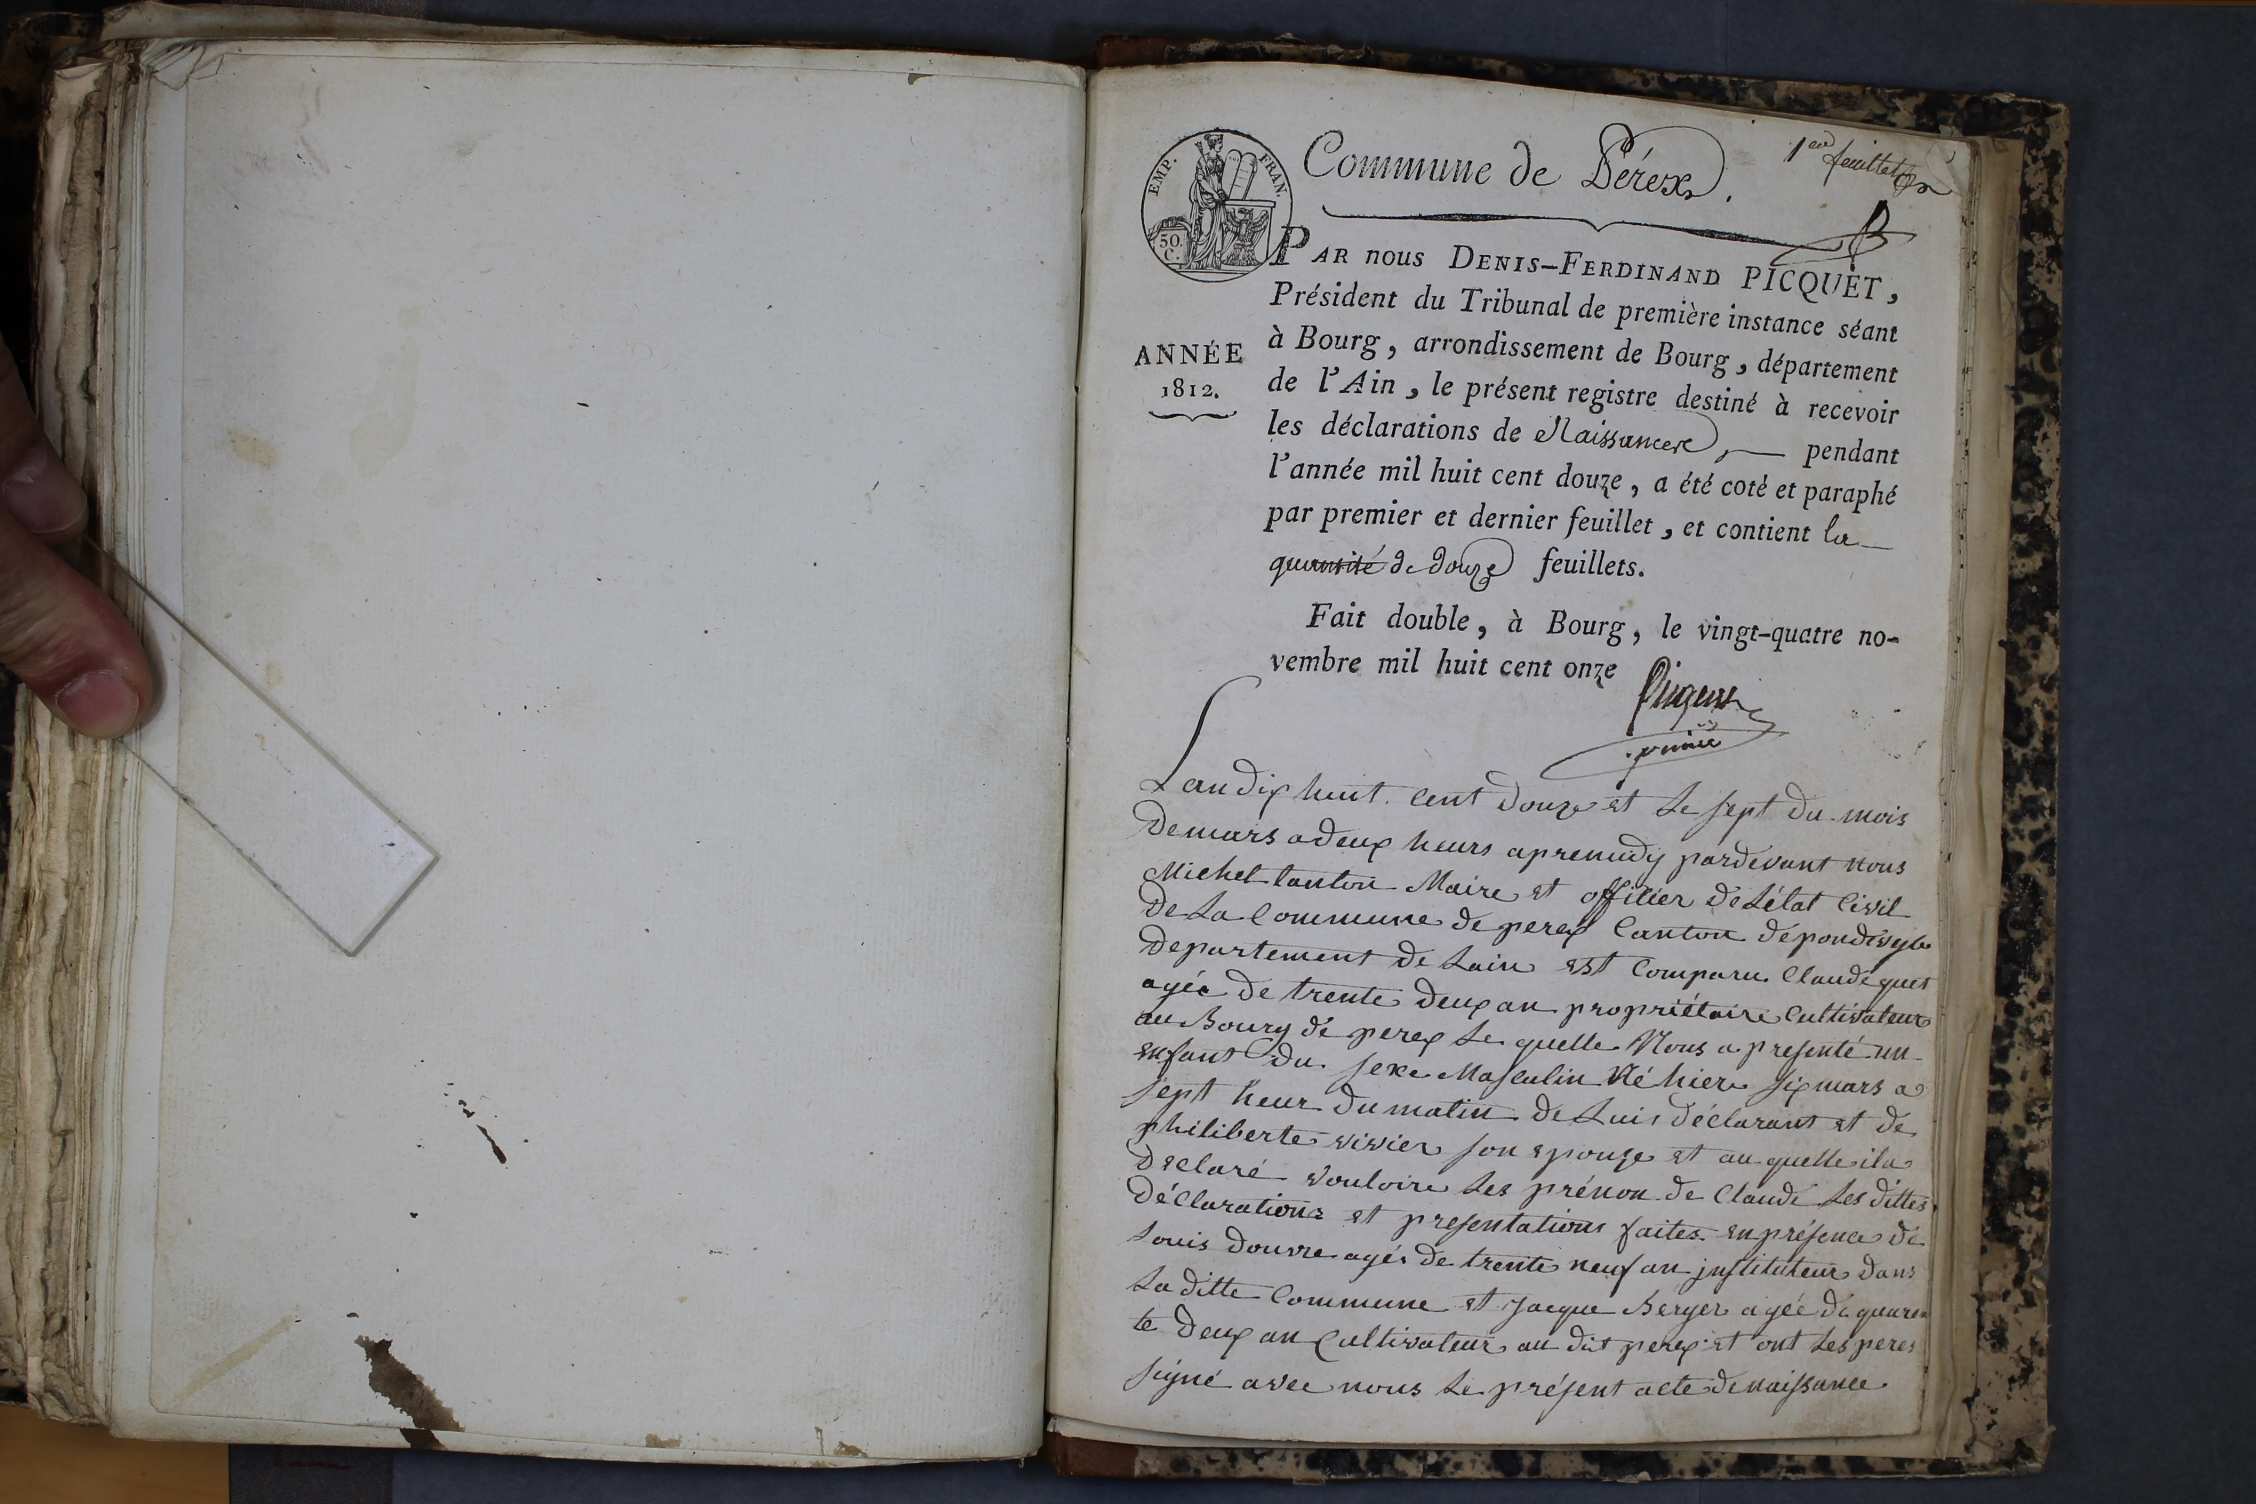 Commune de Pérex.
1er feuillet
EMP. FRAN.
50.
C.
PAR nous DENIS-FERDINAND PICQUET,
Président du Tribunal de première instance séant
à Bourg, arrondissement de Bourg, département
ANNÉE
1812.
de l'Ain, le présent registre destiné à recevoir
les déclarations de Naissances, pendant
l'année mil huit cent douze, a été coté et paraphé
par premier et dernier feuillet, et contient la
quantité de douze feuillets.
Fait double, à Bourg, le vingt-quatre no-
vembre mil huit cent onze
Lan dix huit cent douze et le sept du mois
de mars a deux heurs apremidy pardevant nous
Michel tanton Maire et officier de L'état Civil
de La Commune de perex Canton de pondevyle
departement de Lain est Comparu Claude quet
agée de trente deux an propriétaire Cultivateur
au Bourg de perex Le quelle Nous a presenté un
enfant du sexe Masculin Né hier six mars a
sept heur du matin de Lui déclarant et de
philiberte vivier son epouse et au quelle ila
declaré vouloire Les prénon de Claude Les dittes
déclarations et presentations faites en présence de
Louis douvre agés de trente neuf an instituteur dans
La ditte Commune et Jacque Berger agée de quaren
te deux an Cultivateur au dit perex et ont Les peres
signé avec nous Le présent acte de naissance